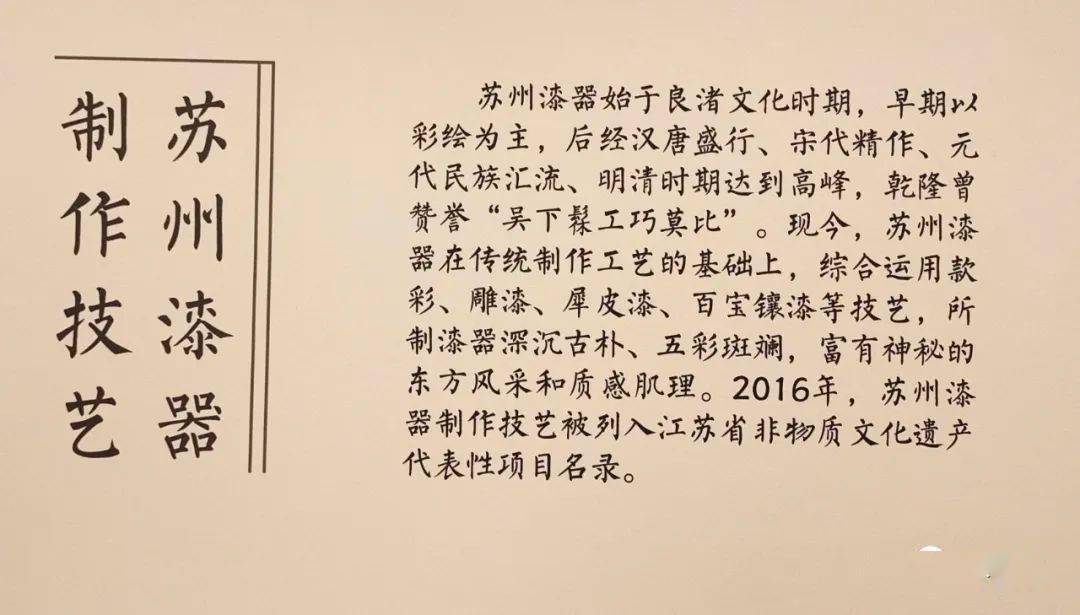 苏州漆器
制作技艺
苏州漆器始于良渚文化时期，早期以
彩绘为主，后经汉唐盛行、宋代精作、元
代民族汇流、明清时期达到高峰，乾隆曾
赞誉“吴下髹工巧莫比”。现今，苏州漆
器在传统制作工艺的基础上，综合运用款
彩、雕漆、犀皮漆、百宝镶漆等技艺，所
制漆器深沉古朴、五彩斑斓，富有神秘的
东方风采和质感肌理。2016年，苏州漆
器制作技艺被列入江苏省非物质文化遗产
代表性项目名录。